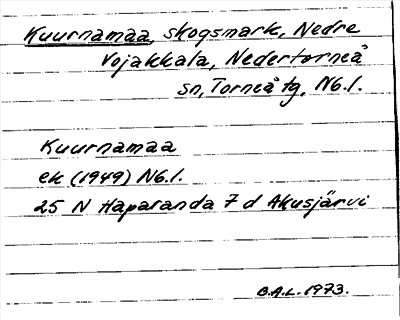 Kuurnamaa, skogsmark, Nedre
Vojakkala, Nedertorneå
sn, Torneå tg, N6.1.
Kuurnamaa
ek (1949) N6.1.
25 N Haparanda 7 d Akusjärvi
B.A.L. 1973.